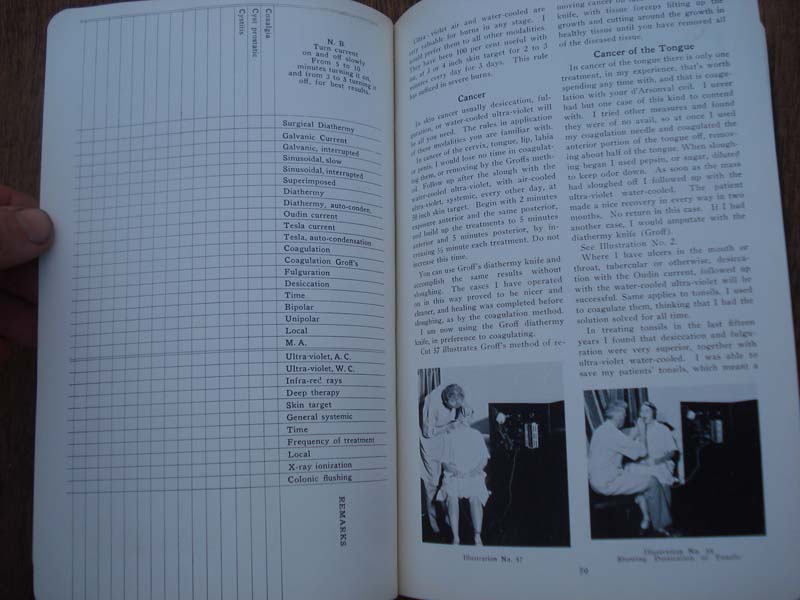 Coxalgia
Cyst prostatic
Cystitis
N. B.
Turn current
on and off slowly
From 5 to 10
minutes turning it on,
and from 3 to 5 turning it
off, for best results.
Surgical Diathermy
Galvanic Current
Galvanic, interrupted
Sinusoidal, slow
Sinusoidal, interrupted
Superimposed
Diathermy
Diathermy, auto-conden.
Oudin current
Tesla current
Tesla, auto-condensation
Coagulation
Coagulation Groff's
Fulguration
Desiccation
Time
Bipolar
Unipolar
Local
M. A.
Ultra-violet, A. C.
Ultra-violet, W. C.
Infra-red rays
Deep therapy
Skin target
General systemic
Time
Frequency of treatment
Local
X-ray ionization
Colonic flushing
REMARKS
violet air and water-cooled are
very valuable for burns in any stage. I
would prefer them to all other modalities.
They have been 100 per cent useful with
3 or 4 inch skin target for 2 to 3
minutes every day for 3 days. This rule
has sufficed in severe burns.
Cancer
In skin cancer usually desiccation, ful-
guration, or water-cooled ultra-violet will
be all you need. The rules in application
of these modalities you are familiar with.
In cancer of the cervix, tongue, lip, labia
or penis, I would lose no time in coagulat-
ing them, or removing by the Groff's meth-
od. Follow up after the slough with the
water-cooled ultra-violet, with air-cooled
ultra-violet, systemic, every other day, at
30 inch skin target. Begin with 2 minutes
exposure anterior and the same posterior,
and build up the treatments to 5 minutes
anterior and 5 minutes posterior, by in-
creasing ½ minute each treatment. Do not
increase this time.
You can use Groff's diathermy knife and
accomplish the same results without
sloughing. The cases I have operated
on in this way proved to be nicer and
cleaner, and healing was completed before
sloughing, as by the coagulation method.
I am now using the Groff diathermy
knife, in preference to coagulating.
Cut 57 illustrates Groff's method of re-
moving cancer
knife, with tissue forceps lifting up the
growth and cutting around the growth in
healthy tissue until you have removed all
of the diseased tissue.
Cancer of the Tongue
In cancer of the tongue there is only one
treatment, in my experience, that's worth
spending any time with, and that is coagu-
lation with your d'Arsonval coil. I never
had but one case of this kind to contend
with. I tried other measures and found
they were of no avail, so at once I used
my coagulation needle and coagulated the
anterior portion of the tongue off, remov-
ing about half of the tongue. When slough-
ing began I used pepsin, or sugar, diluted
to keep odor down. As soon as the mass
had sloughed off I followed up with the
ultra-violet water-cooled. The patient
made a nice recovery in every way in two
months. No return in this case. If I had
another case, I would amputate with the
diathermy knife (Groff).
See Illustration No. 2.
Where I have ulcers in the mouth or
throat, tubercular or otherwise, desicca-
tion with the Oudin current, followed up
with the water-cooled ultra-violet will be
successful. Same applies to tonsils, I used
to coagulate them, thinking that I had the
solution solved for all time.
In treating tonsils in the last fifteen
years I found that desiccation and fulgu-
ration were very superior, together with
ultra-violet water-cooled. I was able to
save my patients' tonsils, which meant a
Illustration No. 57
Illustration No. 58
Showing Desiccation of Tonsils.